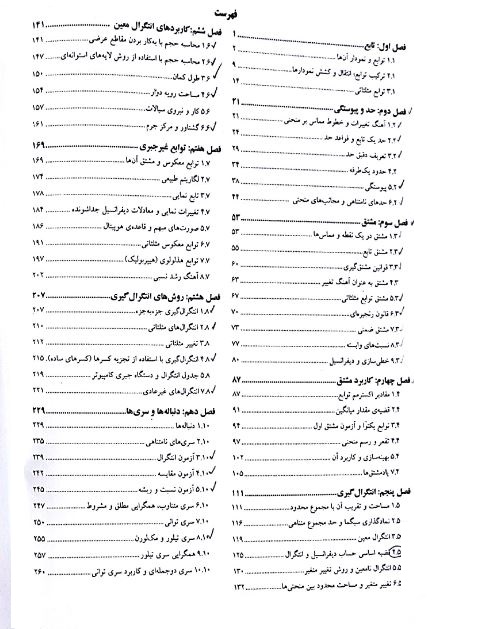 فهرست
فصل اول: تابع ۱
۱.۱ توابع و نمودار آن‌ها ۲
۲.۱ ترکیب توابع؛ انتقال و کشش نمودارها ۹
۳.۱ توابع مثلثاتی ۱۴
فصل دوم: حد و پیوستگی ۲۱
۱.۲ آهنگ تغییرات و خطوط مماس بر منحنی ۲۱
۲.۲ حد یک تابع و قواعد حد ۲۴
۳.۲ تعریف دقیق حد ۲۹
۴.۲ حدود یک‌طرفه ۳۴
۵.۲ پیوستگی ۳۸
۶.۲ حدهای نامتناهی و مجانب‌های منحنی ۴۴
فصل سوم: مشتق ۵۳
۱.۳ مشتق در یک نقطه و مماس‌ها ۵۳
۲.۳ مشتق تابع ۵۵
۳.۳ قوانین مشتق‌گیری ۶۰
۴.۳ مشتق به عنوان آهنگ تغییر ۶۳
۵.۳ مشتق توابع مثلثاتی ۶۷
۶.۳ قانون زنجیره‌ای ۷۰
۷.۳ مشتق ضمنی ۷۳
۸.۳ نسبت‌های وابسته ۷۷
۹.۳ خطی‌سازی و دیفرانسیل ۸۰
فصل چهارم: کاربرد مشتق ۸۷
۱.۴ مقادیر اکسترمم توابع ۸۷
۲.۴ قضیه‌ی مقدار میانگین ۹۱
۳.۴ توابع یکنوا و آزمون مشتق اول ۹۴
۴.۴ تقعر و رسم منحنی ۹۷
۵.۴ بهینه‌سازی و کاربرد آن ۱۰۲
۷.۴ پادمشتق‌ها ۱۰۵
فصل پنجم: انتگرال‌گیری ۱۱۱
۱.۵ مساحت و تقریب آن با مجموع محدود ۱۱۱
۲.۵ نمادگذاری سیگما و حد مجموع متناهی ۱۱۶
۳.۵ انتگرال معین ۱۱۹
۴.۵ قضیه اساسی حساب دیفرانسیل و انتگرال ۱۲۵
۵.۵ انتگرال نامعین و روش تغییر متغیر ۱۳۰
۶.۵ تغییر متغیر و مساحت محدود بین منحنی‌ها ۱۳۲
فصل ششم: کاربردهای انتگرال معین ۱۴۱
۱.۶ محاسبه حجم با به‌کار بردن مقاطع عرضی ۱۴۱
۲.۶ محاسبه حجم با استفاده از روش لایه‌های استوانه‌ای ۱۴۷
۳.۶ طول کمان ۱۵۰
۴.۶ مساحت رویه دوار ۱۵۴
۵.۶ کار و نیروی سیالات ۱۵۷
۶.۶ گشتاور و مرکز جرم ۱۶۱
فصل هفتم: توابع غیرجبری ۱۶۹
۱.۷ توابع معکوس و مشتق آن‌ها ۱۶۹
۲.۷ لگاریتم طبیعی ۱۷۴
۳.۷ تابع نمایی ۱۷۸
۴.۷ تغییرات نمایی و معادلات دیفرانسیل جداشونده ۱۸۴
۵.۷ صورت‌های مبهم و قاعده‌ی هوپیتال ۱۸۶
۶.۷ توابع معکوس مثلثاتی ۱۹۱
۷.۷ توابع هذلولوی (هیپربولیک) ۱۹۷
۸.۷ آهنگ رشد نسبی ۲۰۲
فصل هشتم: روش‌های انتگرال‌گیری ۲۰۷
۱.۸ انتگرال‌گیری جزءبه‌جزء ۲۰۷
۲.۸ انتگرال‌های مثلثاتی ۲۱۰
۳.۸ تغییر مثلثاتی ۲۱۲
۴.۸ انتگرال‌گیری با استفاده از تجزیه کسرها (کسرهای ساده) ۲۱۵
۵.۸ جدول انتگرال و دستگاه جبری کامپیوتر ۲۱۹
۷.۸ انتگرال‌های غیرعادی ۲۲۱
فصل دهم: دنباله‌ها و سری‌ها ۲۲۹
۱.۱۰ دنباله‌ها ۲۲۹
۲.۱۰ سری‌های نامتناهی ۲۳۵
۳.۱۰ آزمون انتگرال ۲۳۹
۴.۱۰ آزمون مقایسه ۲۴۲
۵.۱۰ آزمون نسبت و ریشه ۲۴۵
۶.۱۰ سری متناوب، همگرایی مطلق و مشروط ۲۴۷
۷.۱۰ سری توانی ۲۵۰
۸.۱۰ سری تیلور و مک‌لورن ۲۵۵
۹.۱۰ همگرایی سری تیلور ۲۵۷
۱۰.۱۰ سری دوجمله‌ای و کاربرد سری توانی ۲۶۰